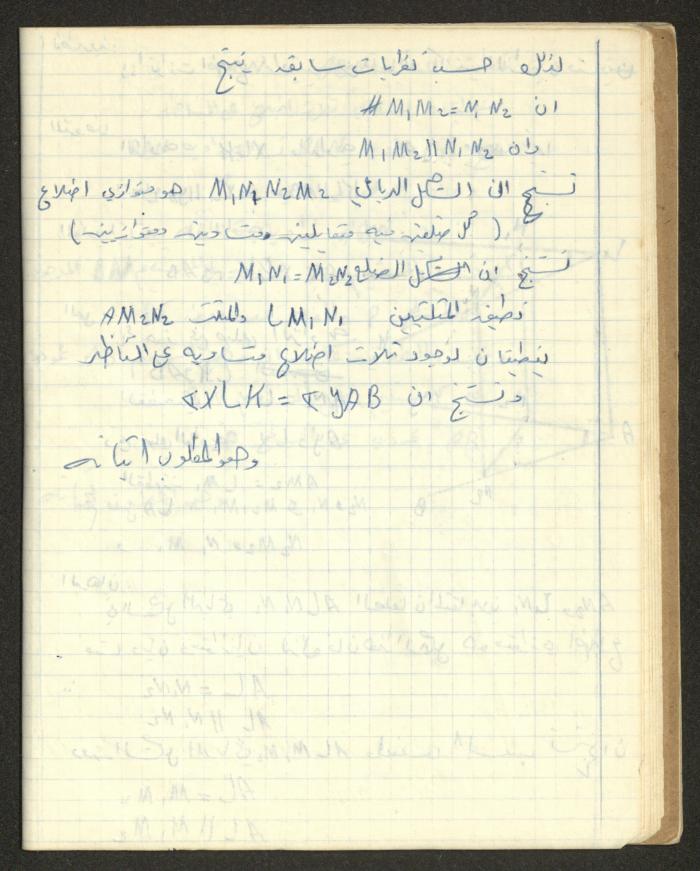 لذلك حسب نظريات سابقه ينتج
ان M₁M₂ = N₁N₂ #
وان M₁M₂ || N₁N₂
نستنتج ان الشكل الرباعي M₁N₁N₂M₂ هو متوازي اضلاع
( كل ضلعين فيه متقابلين متساويين ومتوازيين )
نستنتج ان الضلع M₁N₁ = M₂N₂
نطبق المثلثين LM₁N₁ والمثلث AM₂N₂
ينطبقان لوجود ثلاث اضلاع متساويه على التناظر
ونستنج ان ∢XLK = ∢YAB
وهو المطلوب اثباته